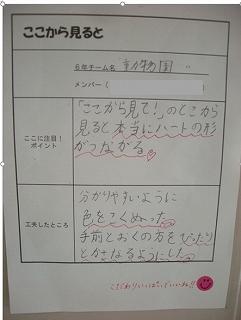 ここから見ると
6年チーム名 動物園
メンバー(
ここに注目!
ポイント
「ここから見て!」のところから
見ると本当にハートの形
がつながる。
工夫したところ
分かりやすいように
色をこくぬった。
手前とおくの方をぴったり
とかさなるようにした。
こだわりいっぱいでいいね!!